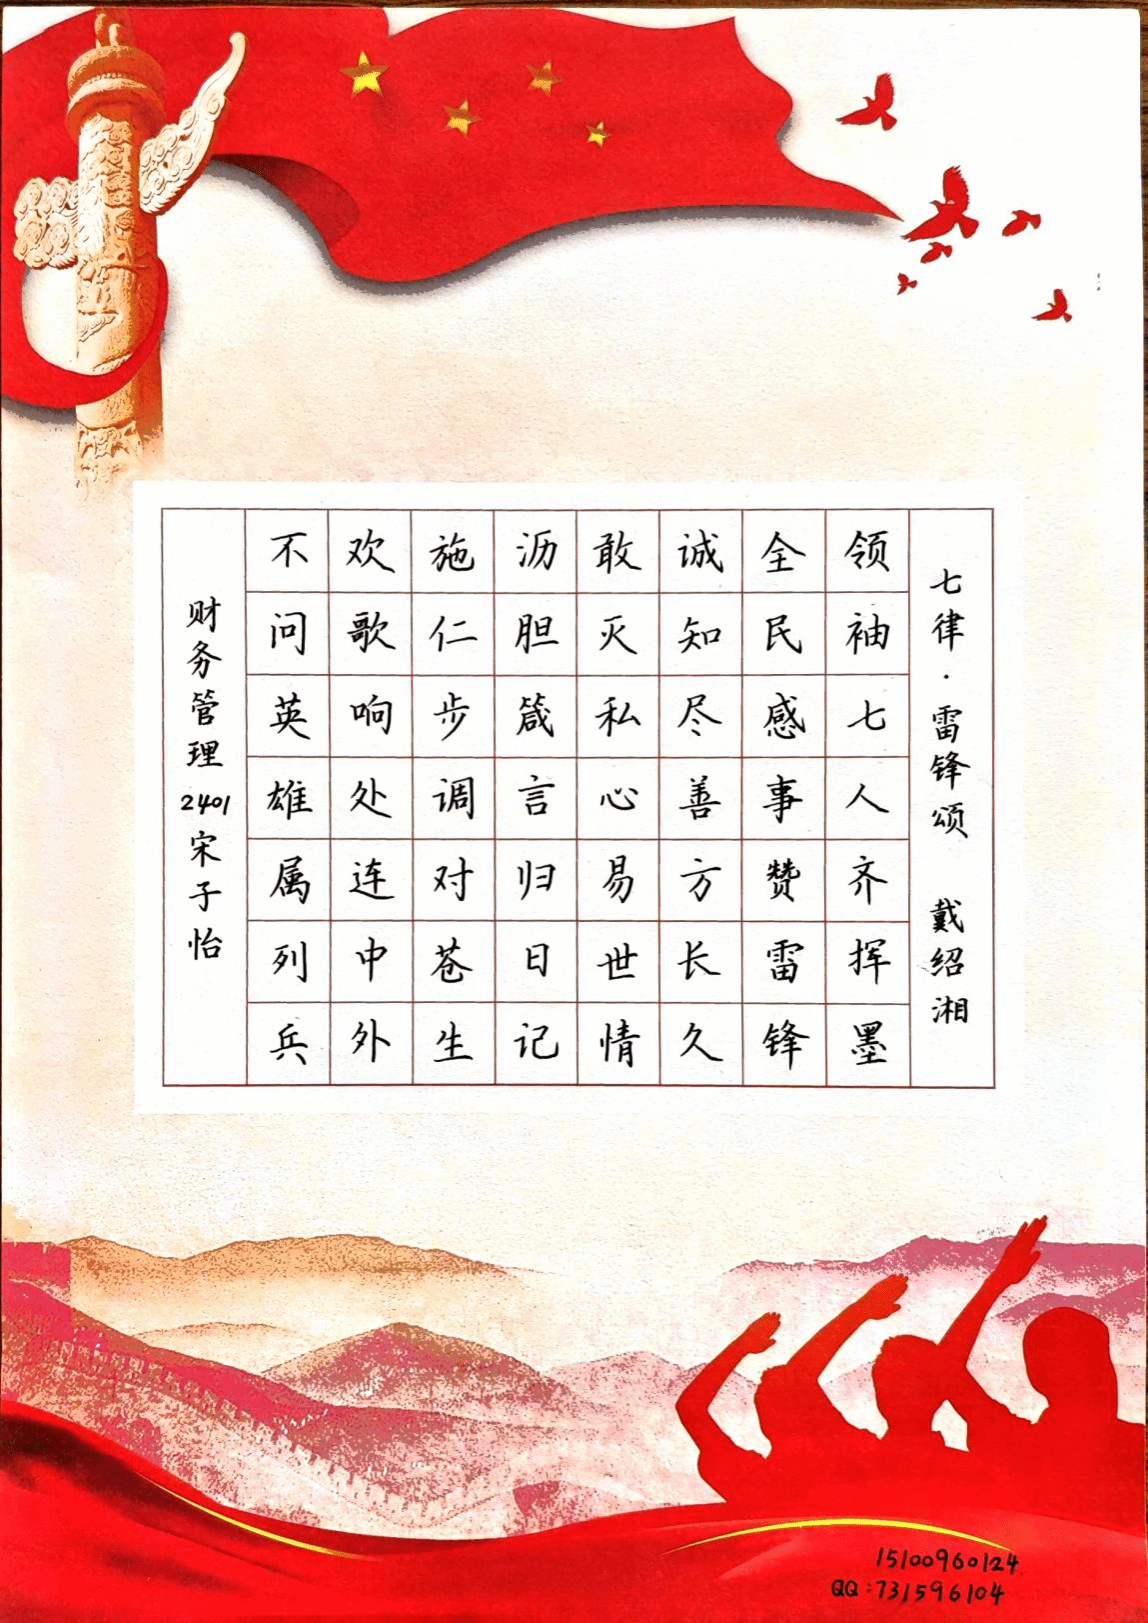 七律·雷锋颂 戴绍湘
领袖七人齐挥墨
全民感事赞雷锋
诚知尽善方长久
敢灭私心易世情
沥胆箴言归日记
施仁步调对苍生
欢歌响处连中外
不问英雄属列兵
财务管理2401宋子怡
15100960124
QQ:731596104